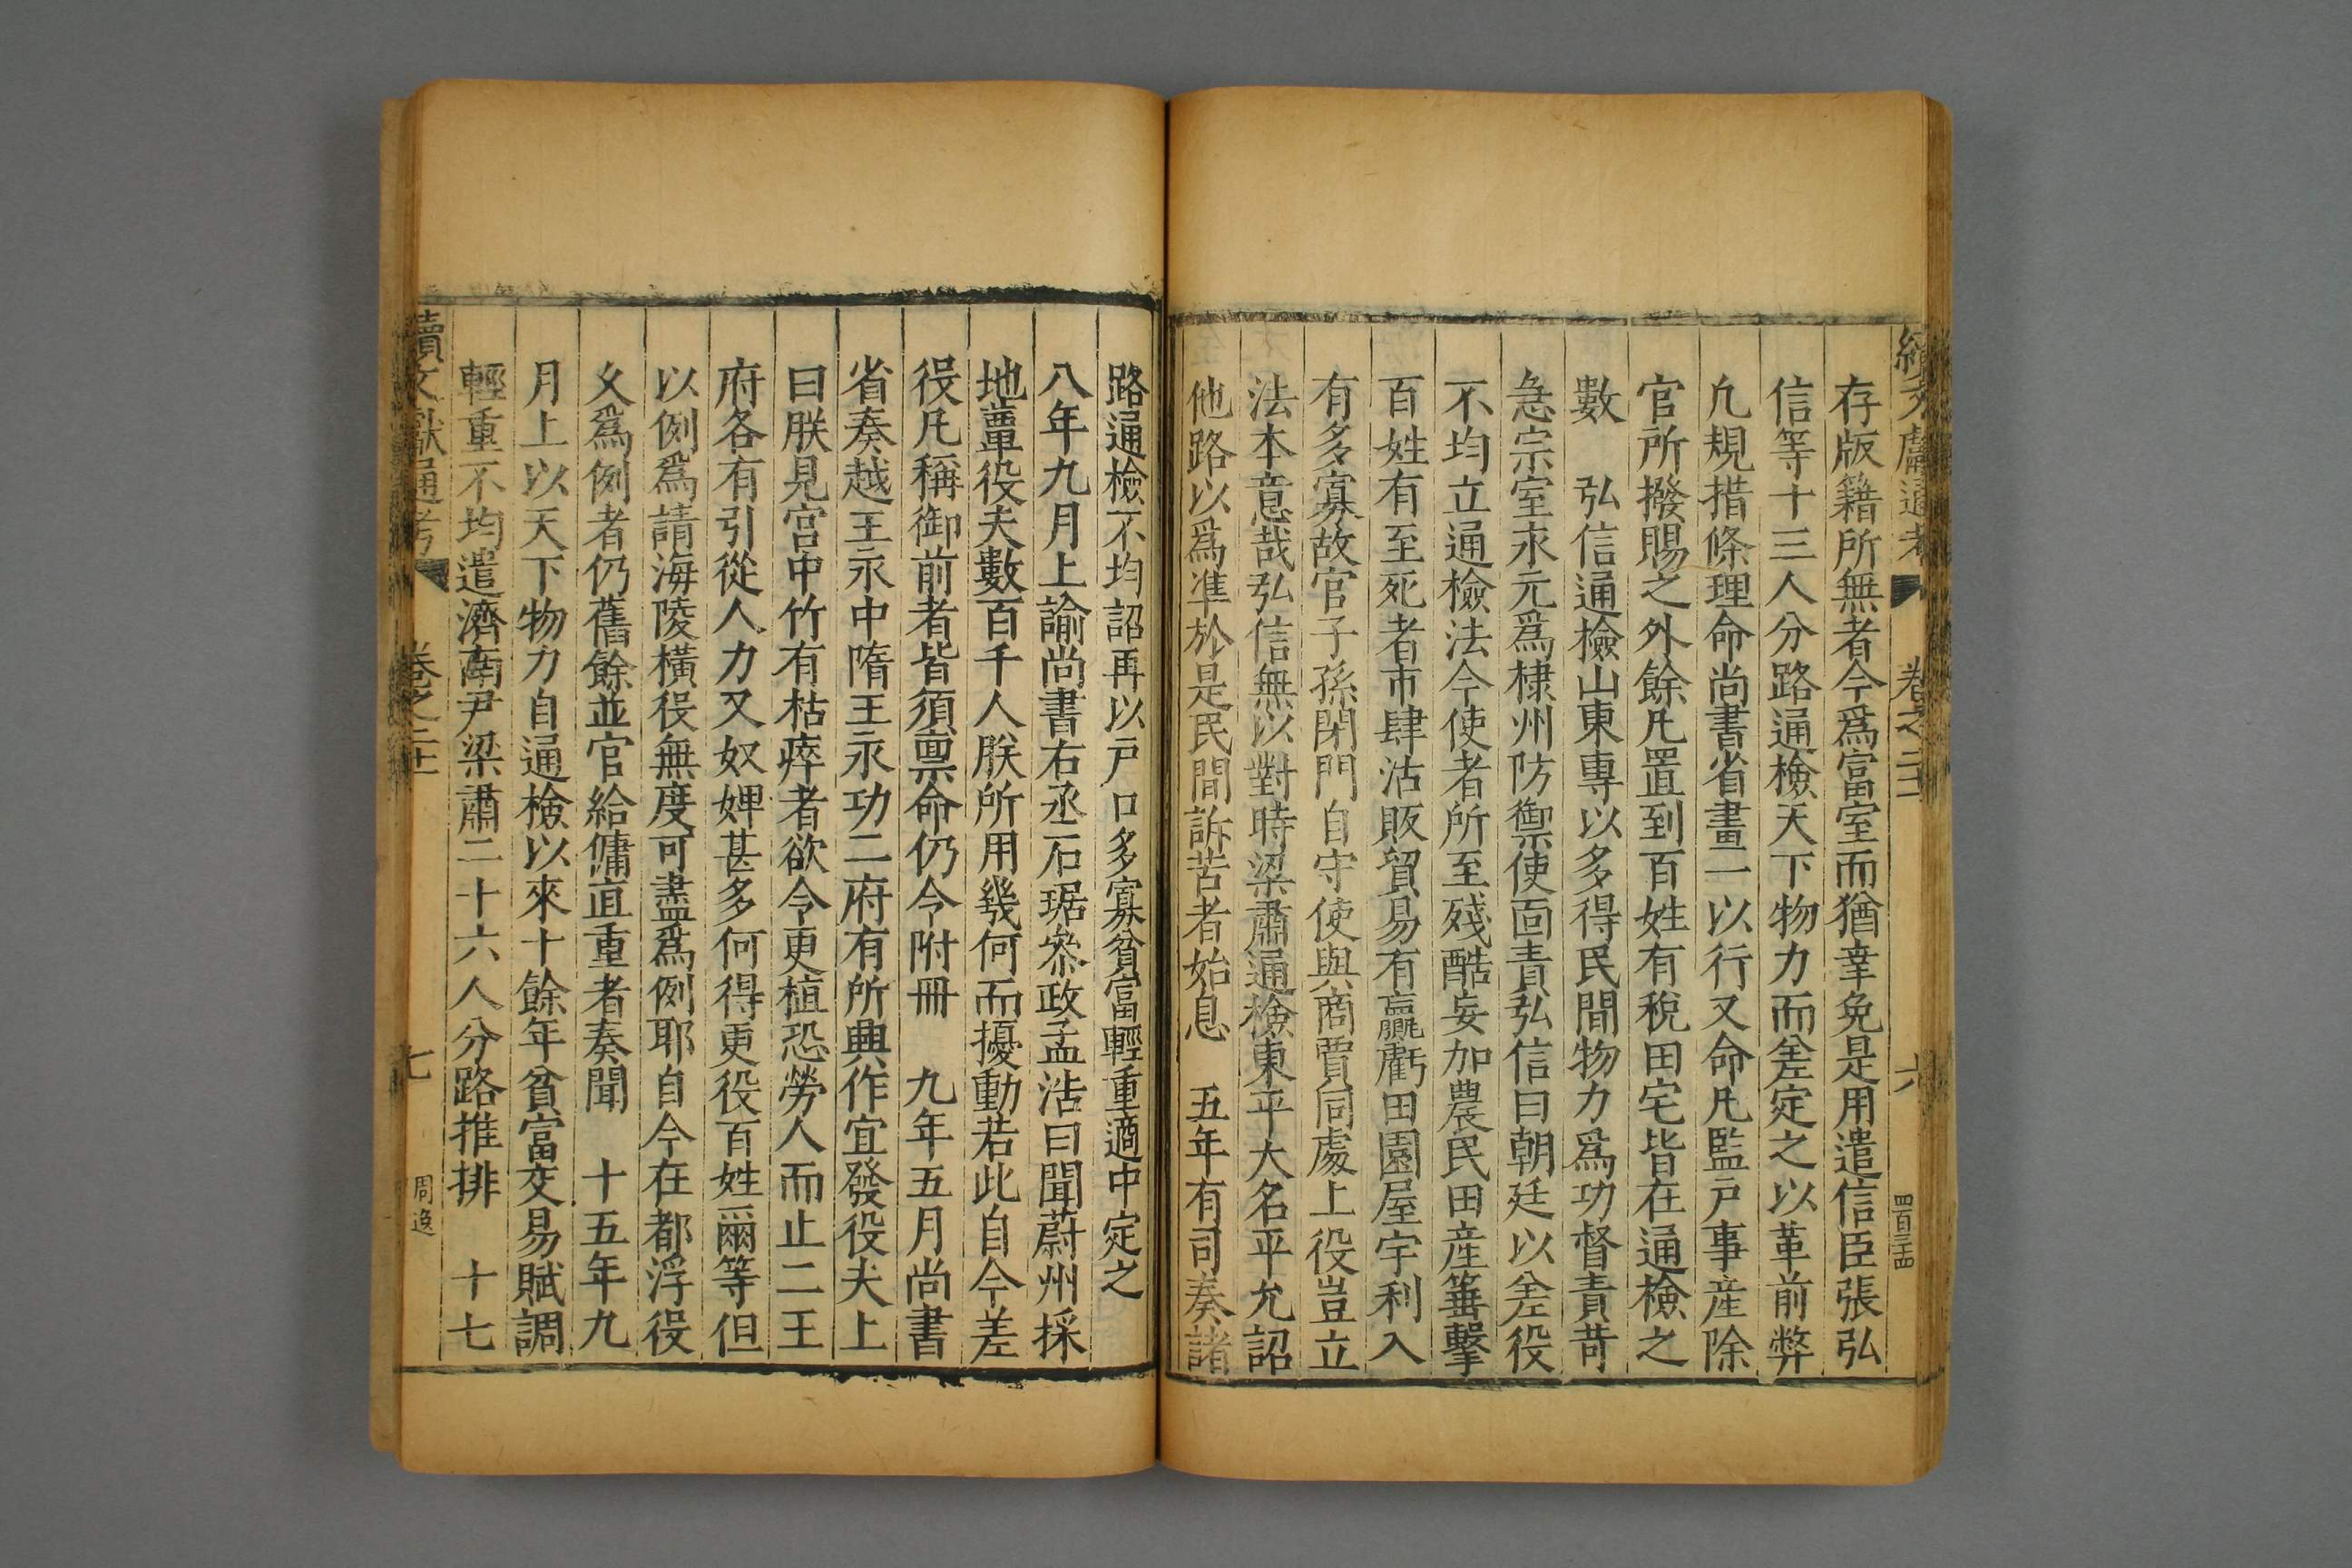 續文獻通考 卷之二十 六 四百三十四
存版籍所無者今爲富室而猶幸免是用遣信臣張弘
信等十三人分路通檢天下物力而差定之以革前弊
凢規措條理命尚書省畫一以行又命凢監戸事産除
官所撥賜之外餘凢置到百姓有稅田宅皆在通檢之
數　弘信通檢山東專以多得民間物力爲功督責苛
急宗室永元爲棣州防禦使面責弘信曰朝廷以差役
不均立通檢法今使者所至殘酷妄加農民田産箠擊
百姓有至死者市肆沽販貿易有贏虧田園屋宇利入
有多寡故官子孫閉門自守使與商賈同處上役豈立
法本意哉弘信無以對時梁肅通檢東平大名平允詔
他路以爲準於是民間訴苦者始息　五年有司奏諸
路通檢不均詔再以戸口多寡貧富輕重適中定之
八年九月上諭尚書右丞石琚叅政孟浩曰聞蔚州採
地蕈役夫數百千人朕所用幾何而擾動若此自今差
役凢稱御前者皆須禀命仍令附冊　九年五月尚書
省奏越王永中隋王永功二府有所興作宜發役夫上
曰朕見宮中竹有枯瘁者欲令更植恐勞人而止二王
府各有引從人力又奴婢甚多何得更役百姓爾等但
以例爲請海陵橫役無度可盡爲例耶自今在都浮役
久爲例者仍舊餘並官給傭直重者奏聞　十五年九
月上以天下物力自通檢以來十餘年貧富交易賦調
輕重不均遣濟南尹梁肅二十六人分路推排　十七
續文獻通考 卷之二十 七 周逵